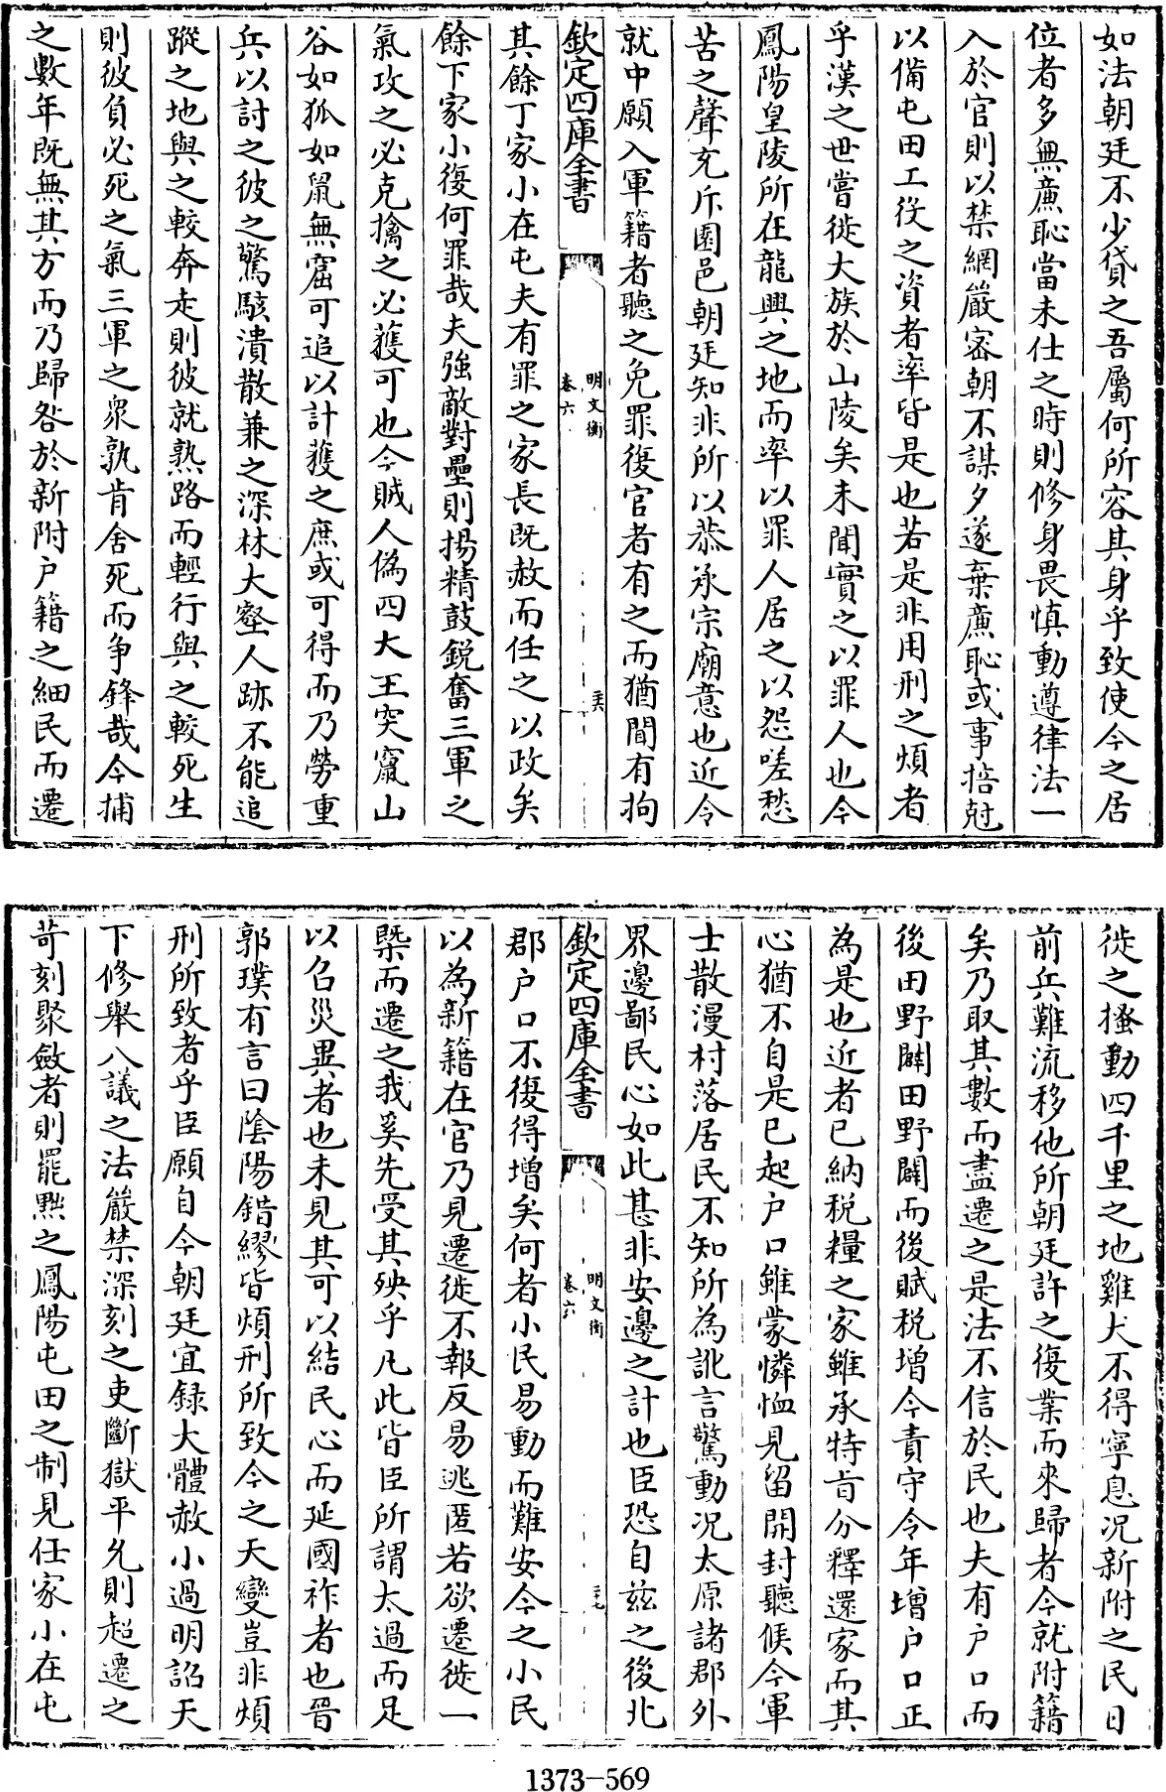 如法朝廷不少貸之吾屬何所容其身乎致使今之居
位者多無廉恥當未仕之時則修身畏慎動遵律法一
入於官則以禁網嚴密朝不謀夕遂棄廉恥或事掊尅
以備屯田工役之資者率皆是也若是非用刑之煩者
乎漢之世嘗徙大族於山陵矣未聞實之以罪人也今
鳳陽皇陵所在龍興之地而率以罪人居之以怨嗟愁
苦之聲充斥園邑朝廷知非所以恭承宗廟意也近令
就中願入軍籍者聽之免罪復官者有之而猶聞有拘
欽定四庫全書
明文衡
卷六
二十六
其餘丁家小在屯夫有罪之家長既赦而任之以政矣
餘下家小復何罪哉夫強敵對壘則揚精鼓銳奮三軍之
氣攻之必克擒之必獲可也今賊人偽四大王突竄山
谷如狐如鼠無窟可追以計獲之庶或可得而乃勞重
兵以討之彼之驚駭潰散兼之深林大壑人跡不能追
蹤之地與之較奔走則彼就熟路而輕行與之較死生
則彼負必死之氣三軍之衆孰肯舍死而争鋒哉今捕
之數年既無其方而乃歸咎於新附户籍之細民而遷
徙之搔動四千里之地雞犬不得寧息况新附之民日
前兵難流移他所朝廷許之復業而來歸者今就附籍
矣乃取其數而盡遷之是法不信於民也夫有户口而
後田野闢田野闢而後賦税增今責守令年增户口正
為是也近者已納税糧之家雖承特旨分釋還家而其
心猶不自是已起户口雖蒙憐恤見留開封聽候今軍
士散漫村落居民不知所為訛言驚動况太原諸郡外
界邊鄙民心如此甚非安邊之計也臣恐自兹之後北
欽定四庫全書
明文衡
卷六
二十七
郡户口不復得增矣何者小民易動而難安今之小民
以為新籍在官乃見遷徙不報反易逃匿若欲遷徙一
槩而遷之我奚先受其殃乎凡此皆臣所謂太過而足
以召災異者也未見其可以結民心而延國祚者也晉
郭璞有言曰陰陽錯繆皆煩刑所致今之天變豈非煩
刑所致者乎臣願自今朝廷宜録大體赦小過明詔天
下修舉八議之法嚴禁深刻之吏斷獄平允則超遷之
苛刻聚斂者則罷黜之鳳陽屯田之制見任家小在屯
1373-569